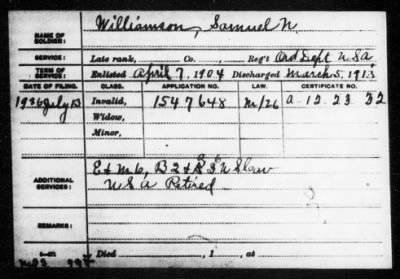 NAME OF SOLDIER: Williamson, Samuel N.
SERVICE: Late rank, Co. , Reg't Ord Dept U S A
TERM OF SERVICE: Enlisted April 7, 1904 Discharged March 5, 191
DATE OF FILING. CLASS. APPLICATION NO. LAW. CERTIFICATE NO.
1926 July 13 Invalid, 1547648 M/26 a 12 23 32
Widow,
Minor,
ADDITIONAL SERVICES: E & M 6, B 2 &
U S A Retired
REMARKS:
Died , 1 , at